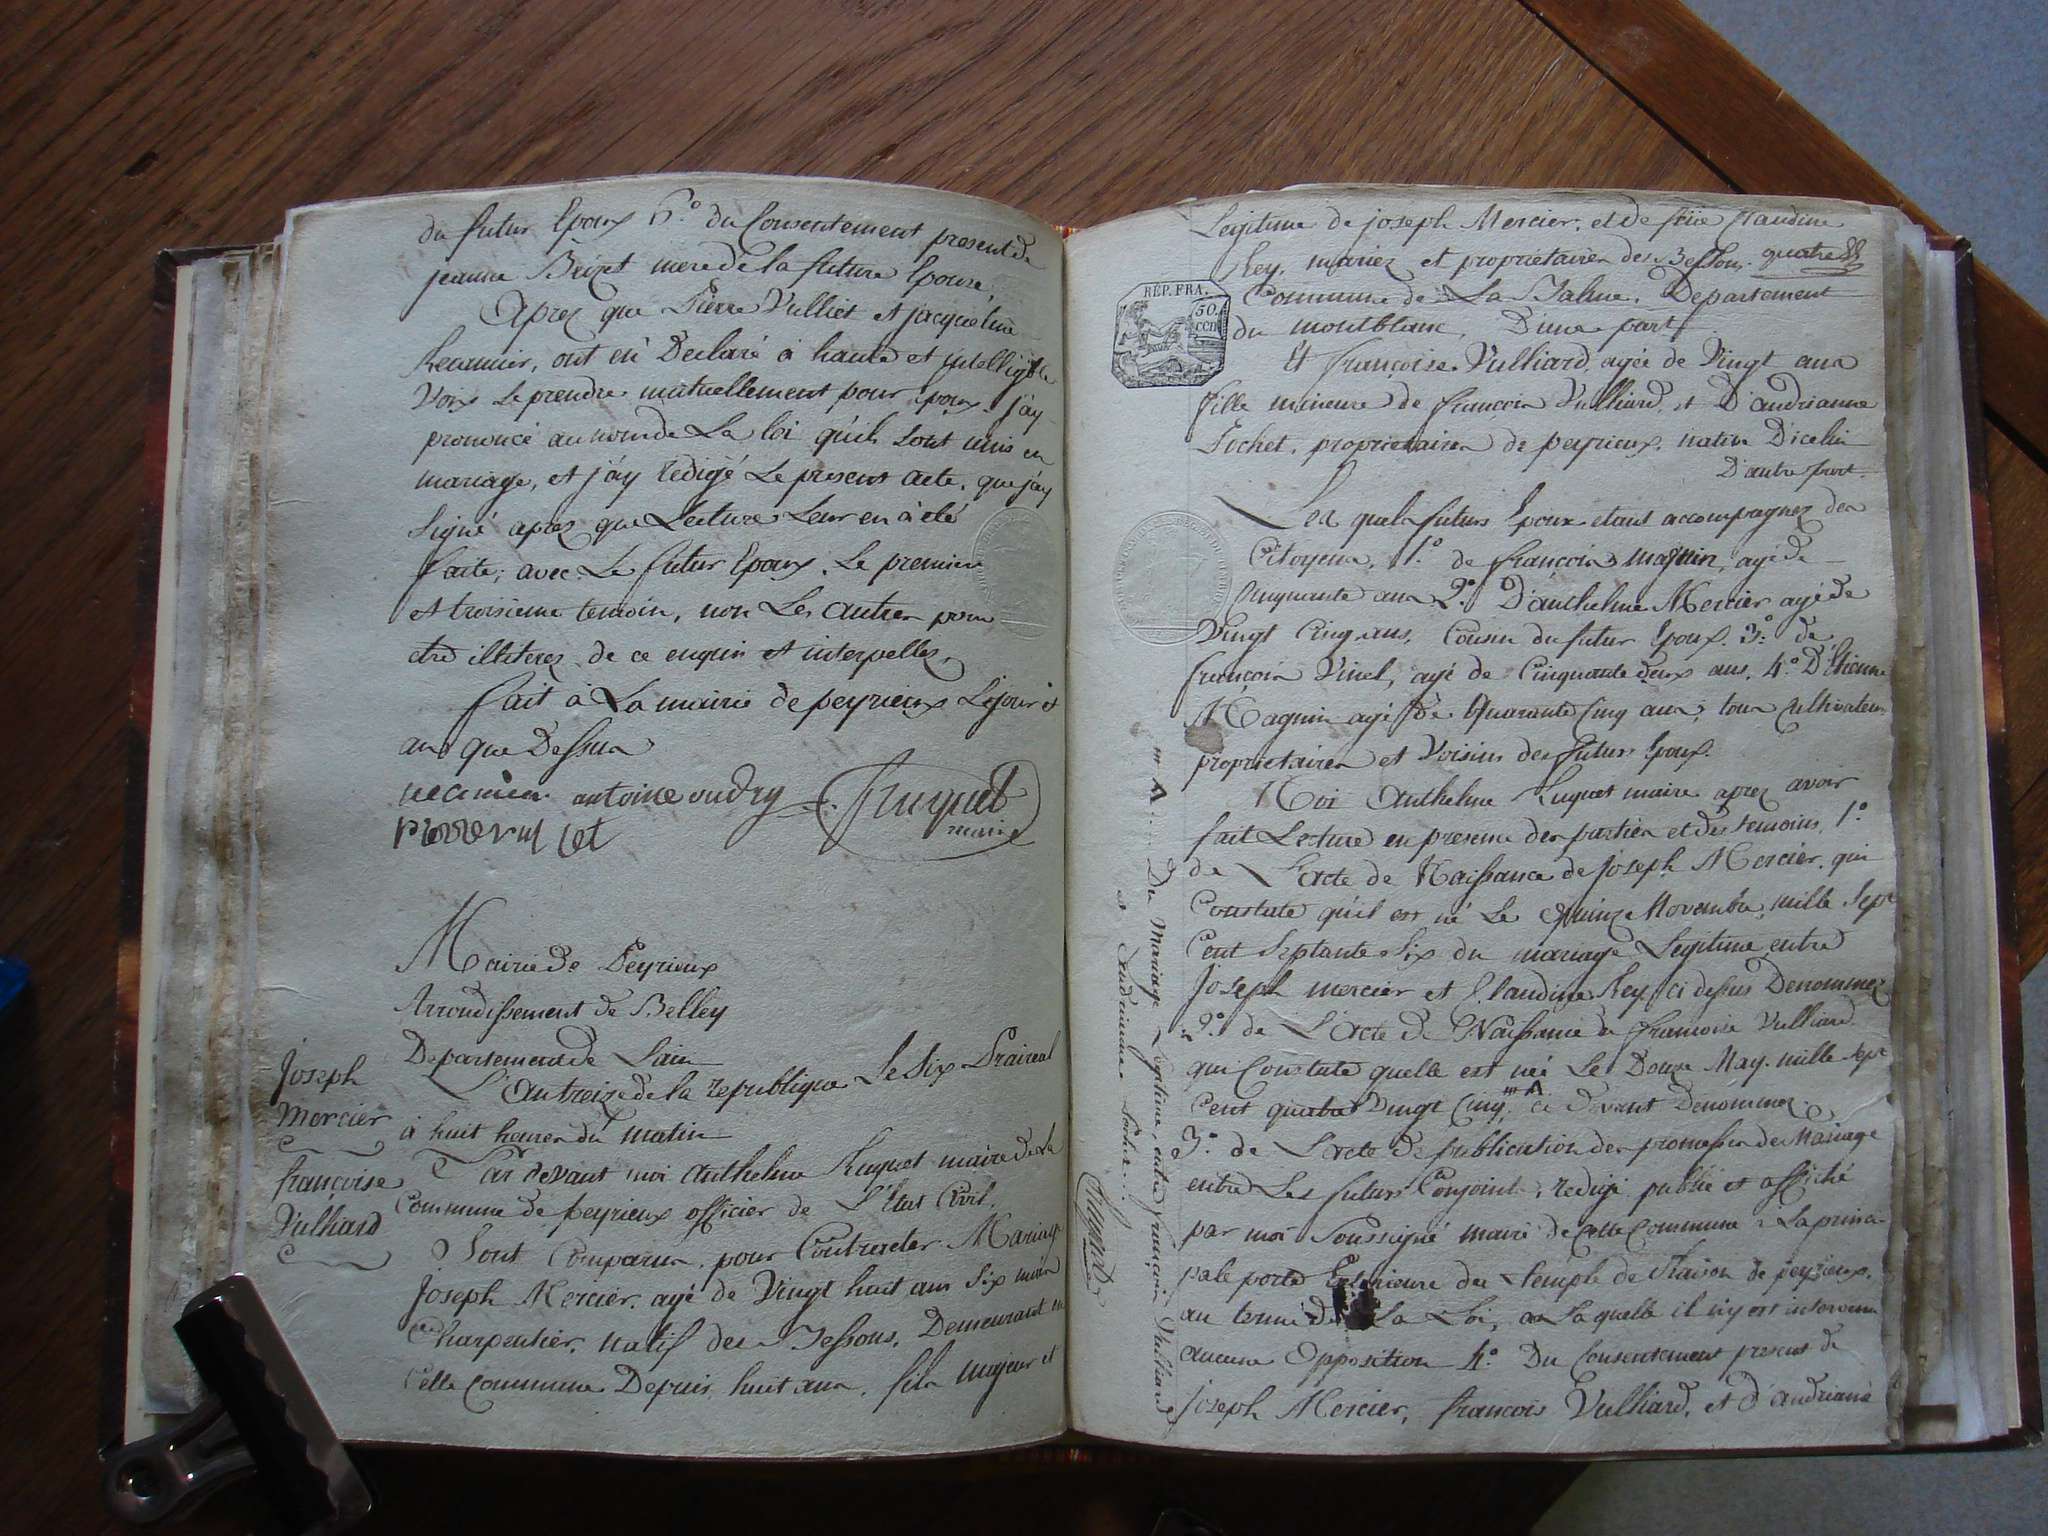 du futur Epoux 6.° du Consentement present de
jeanne Brizet mere de la future Epouse.
Aprez que Pierre Vulliet et jacqueline
Recamier, ont eû Declaré à haute et intelligible
Voix Se prendre mutuellement pour Epoux. j'ay
prononcé au nom de La loi qu'ils Sont unis en
mariage, et j'ay redigé Le present acte, que j'ay
Signé aprez que Lecture Leur en à eté
faite, avec Le futur Epoux. Le premier
et troisieme temoin, non Les autres pour
etre illiterez de ce enquis et interpellez.
fait à La mairie de peyrieux Lejour et
an que Dessus
recamier antoine oudry Fluquet
maire
pierre vulliet
Mairie de Peyrieux
Arrondissement de Belley
Departement de Lain
L'an treize de la republique Le Six Prairéal
à huit heures du matin
Joseph
Mercier
françoise
Vulliard
Par devant moi Anthelme Fluquet maire de La
Commune de peyrieux officier de L'Etat Civil.
Sont Comparus pour Contracter Mariage
Joseph Mercier. agé de Vingt huit ans Six mois
Charpentier. natif des Bessons. Demeurant en
Cette Commune Depuis huit ans. fils majeur et
Legitime de joseph Mercier. et de feüe Claudine
Rey. mariez et proprietaires des Bessons. quatre
REP. FRA.
50.
CEN
Commune de La Balme. Departement
du montblanc, D'une part.
Et françoise Vulliard, agée de Vingt ans
fille mineure de francois Vulliard, et D'andrianne
Sochet, proprietaires de peyrieux. native D'icelui
D'autre part.
Les quels futurs Epoux etant accompagnez des
Citoyens, 1.° de francois magnin, agé de
Cinquante ans 2.° D'anthelme Mercier agé de
Vingt Cinq ans, Cousin du futur Epoux. 3.° de
françois Vinet, agé de Cinquante deux ans, 4.° D'Etienne
Magnin agé de Quarante Cinq ans, tous Cultivateurs
proprietaires et Voisins des futurs Epoux.
Moi Anthelme Fluquet maire aprez avoir
fait Lecture en presence des parties et des temoins, 1.°
de L'acte de Naissance de Joseph Mercier. qui
Constate qu'il est né Le Quinze Novembre, mille Sept
Cent Septante Six du mariage Legitime, entre
Joseph mercier et Claudine Rey, ci dessus Denommez
2.° de L'acte de Naissance de francoise Vulliard
qui Constate quelle est née Le Douze May. mille sept
Cent quatre Vingt Cinq. ci devant Denommez.
3.° de L'acte de publication des promesses de Mariage
entre Les futurs Conjoints, redigé publié et affiché
par moi Soussigné maire de Cette Commune à La princi
pale porte Exterieure du Temple de Raison de peyrieux.
au terme de La Loi, a Laquelle il n'y est intervenu
aucune Opposition 4.° Du Consentement present de
Joseph Mercier, francois Vulliard, et d'andrianne
Du Mariage Legitime, entre françois Vulliard
et Andrienne Sochet
Fluquet